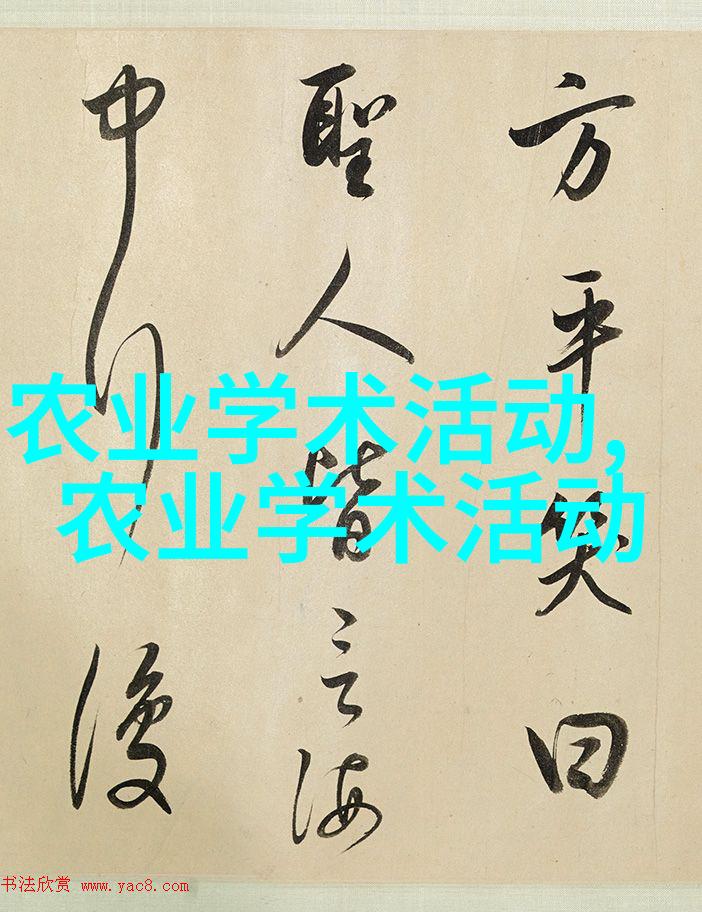 方平笑曰
聖人皆言海
中行復
农业学术活动,
农业学术活动
书法欣赏 www.yac8.com